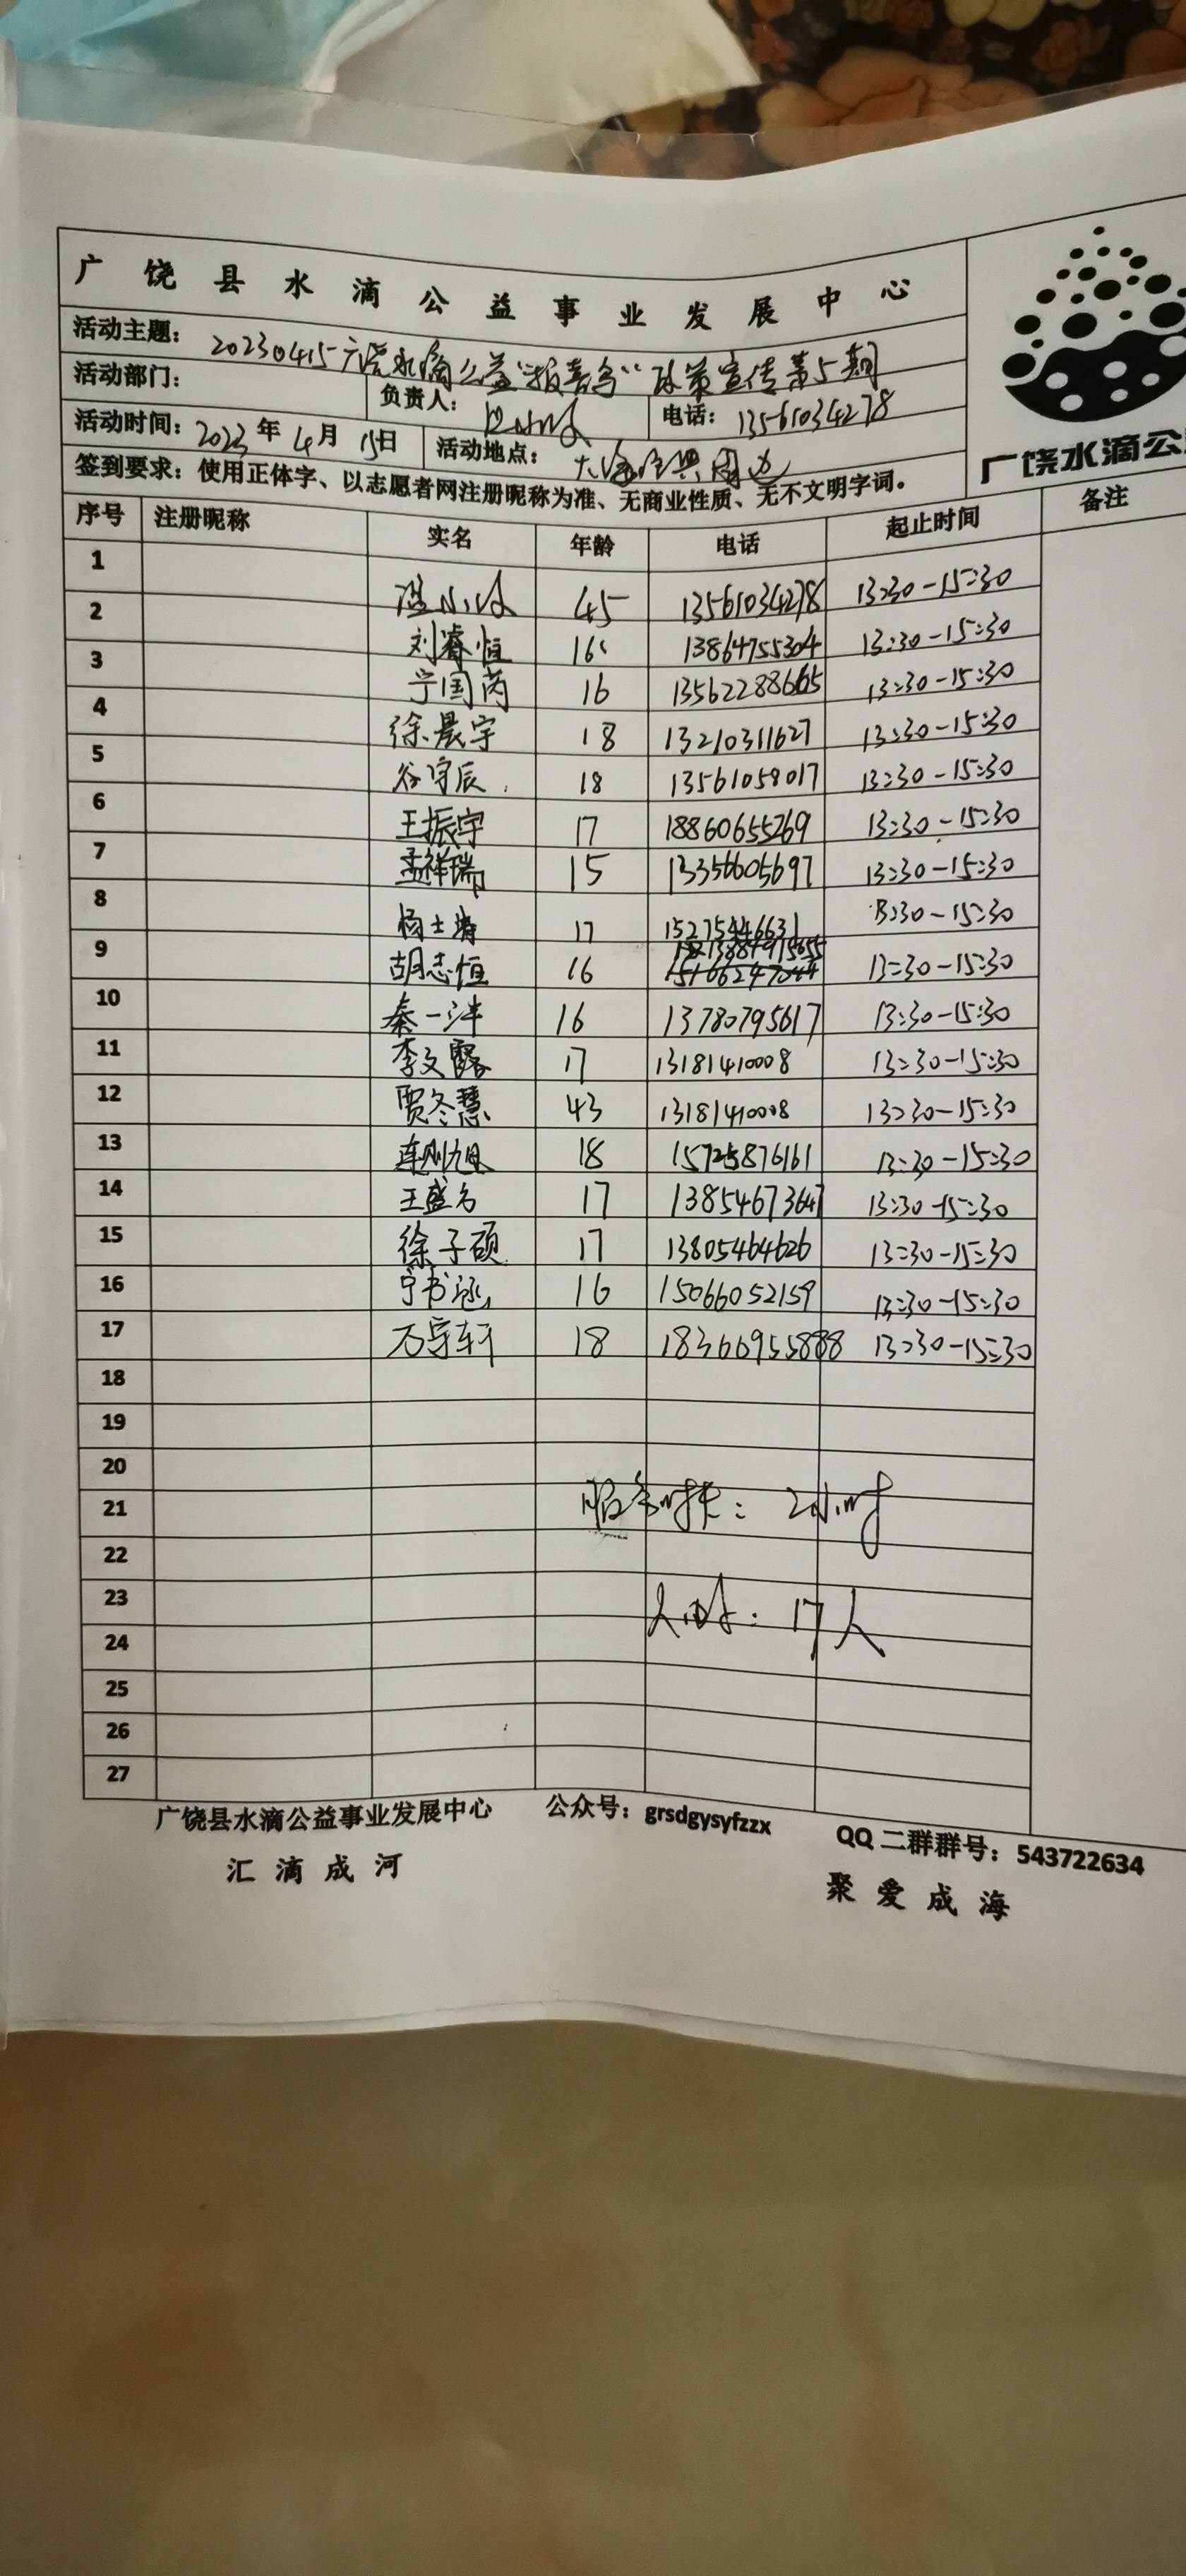 广饶县水滴公益事业发展中心
活动主题：20230415广饶水滴公益“报喜鸟”政策宣传第5期
活动部门： 负责人： 电话：13561034278
活动时间：2023年4月15日 活动地点：大海经典周边
签到要求：使用正体字、以志愿者网注册昵称为准、无商业性质、无不文明字词。
广饶水滴公
序号 注册昵称 实名 年龄 电话 起止时间 备注
1 45 13561034278 13:30-15:30
2 刘睿恒 16 13864755304 13:30-15:30
3 宁国芮 16 13562288665 13:30-15:30
4 徐晨宇 18 13210311627 13:30-15:30
5 谷宇辰 18 13561058017 13:30-15:30
6 王振宇 17 18860655269 13:30-15:30
7 孟祥瑞 15 13356605697 13:30-15:30
8 杨士 17 15275446631 13:30-15:30
9 胡志恒 16 13:30-15:30
10 秦一沣 16 13780795617 13:30-15:30
11 李文露 17 13181410008 13:30-15:30
12 贾冬慧 43 13181410008 13:30-15:30
13 18 15725876161 13:30-15:30
14 王盛名 17 13854673647 13:30-15:30
15 徐子硕 17 13805464626 13:30-15:30
16 宁书涵 16 15066052159 13:30-15:30
17 石宇轩 18 18366955888 13:30-15:30
18
19
20
21 服务时长：2小时
22
23 17人
24
25
26
27
广饶县水滴公益事业发展中心 公众号：grsdgysyfzzx QQ二群群号：543722634
汇滴成河 聚爱成海